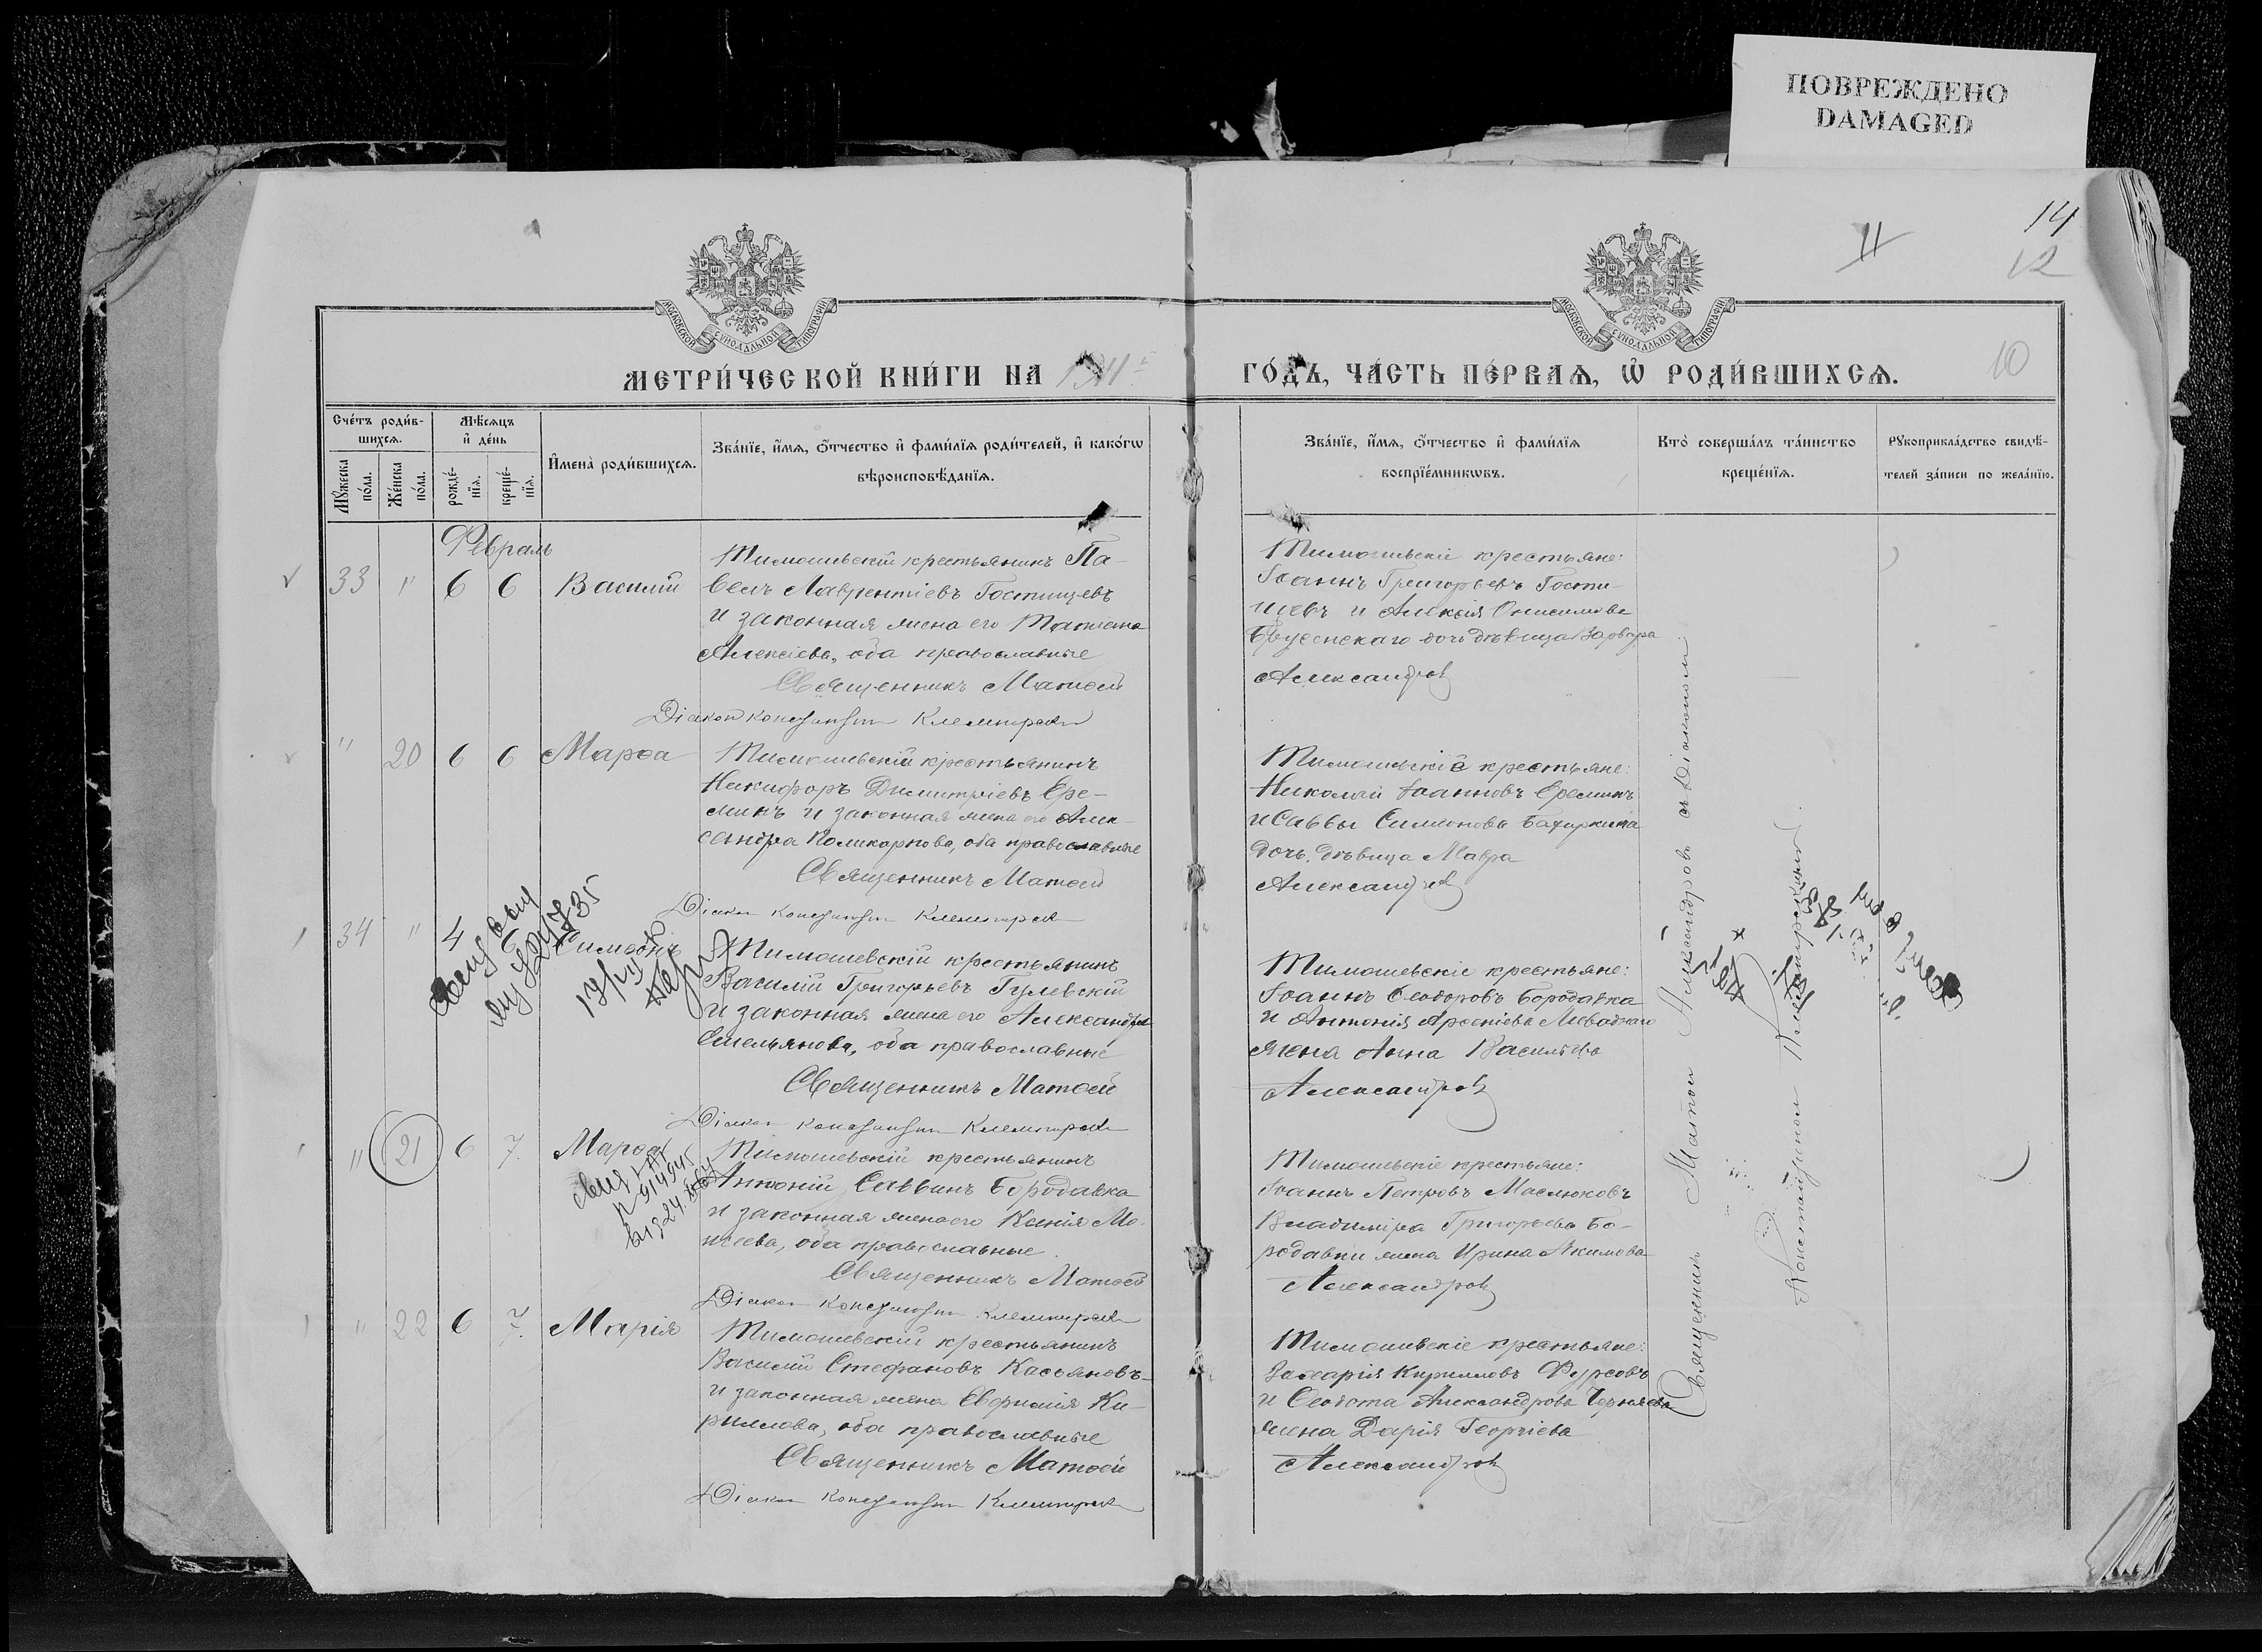 ПОВРЕЖДЕНО
DAMAGED
14
11
12
МОСКОВСКОЙ СѴНОДАЛЬНОЙ ТИПОГРАФІИ
МОСКОВСКОЙ СѴНОДАЛЬНОЙ ТИПОГРАФІИ
МЕТРИ́ЧЕСКОЙ КНИ́ГИ НА 1911 ГО́ДЪ, ЧА́СТЬ ПЕ́РВАѦ, Ѡ҆ РОДИ́ВШИХСѦ.
10
Сче́тъ роди́в-
шихсѧ.
Мꙋ́жеска
по́ла.
Же́нска
по́ла.
Мѣ́сѧцъ
и҆ де́нь
рожде́-
нїѧ.
креще́-
нїѧ.
И҆мена̀ роди́вшихсѧ.
Зва́нїе, и҆́мѧ, ѻ҆́тчество и҆ фами́лїѧ роди́телей, и҆ како́гѡ
вѣроисповѣ́данїѧ.
Зва́нїе, и҆́мѧ, ѻ҆́тчество и҆ фами́лїѧ
воспрїе́мникѡвъ.
Кто̀ соверша́лъ та́инство
креще́нїѧ.
Рꙋкоприкла́дство свидѣ́-
телей за́писи по жела́нїю.
Февраль
33 " 6 6 Василій
Тимошевскій крестьянинъ Па-
велъ Лаврентіевъ Гостищевъ
и законная жена его Татіана
Алексіева, оба православные
Священникъ Матѳей
Діаконъ Константинъ
Тимошевскіе крестьяне:
Іоаннъ Григорьевъ Гости-
щевъ и Алексія Онисимова
дочь дѣвица Варвара
Александров
" 20 6 6 Марѳа
Тимошевскій крестьянинъ
Никифоръ Димитріевъ Ере-
минъ и законная жена его Алек-
сандра Поликарпова, оба православные
Священникъ Матѳей
Діакон Константин
Тимошевскіе крестьяне:
Николай Іоанновъ Ереминъ
и Саввы Симеонова
дочь, дѣвица Мавра
Александров
34 " 4 6 Симеонъ
Тимошевскій крестьянинъ
Василій Григорьевъ Гулевскій
и законная жена его Александра
Емельянова, оба православные
Священникъ Матѳей
Діакон Константин
Тимошевскіе крестьяне:
Іоаннъ Ѳеодоровъ Бородавка
и Антонія Арсеніева
жена Анна Васильева
Александров
" 21 6 7 Марѳа
Тимошевскій крестьянинъ
Антоній Саввинъ Бородавка
и законная жена его Ксенія Мо-
исеева, оба православные
Священникъ Матѳей
Діакон Константин
Тимошевскіе крестьяне:
Іоаннъ Петровъ Маслюковъ
Владиміра Григорьева Бо-
родавки жена Ирина Акимова
Александров
" 22 6 7 Марія
Тимошевскій крестьянинъ
Василій Стефановъ Касьяновъ
и законная жена Евфимія Ки-
риллова, оба православные
Священникъ Матѳей
Діакон Константин
Тимошевскіе крестьяне:
Захарія Кирилловъ Фурсовъ
и Ѳеодота Александрова Черняева
жена Дарія Георгіева
Александров
Священник Матѳей Александровъ и діаконом
Константином